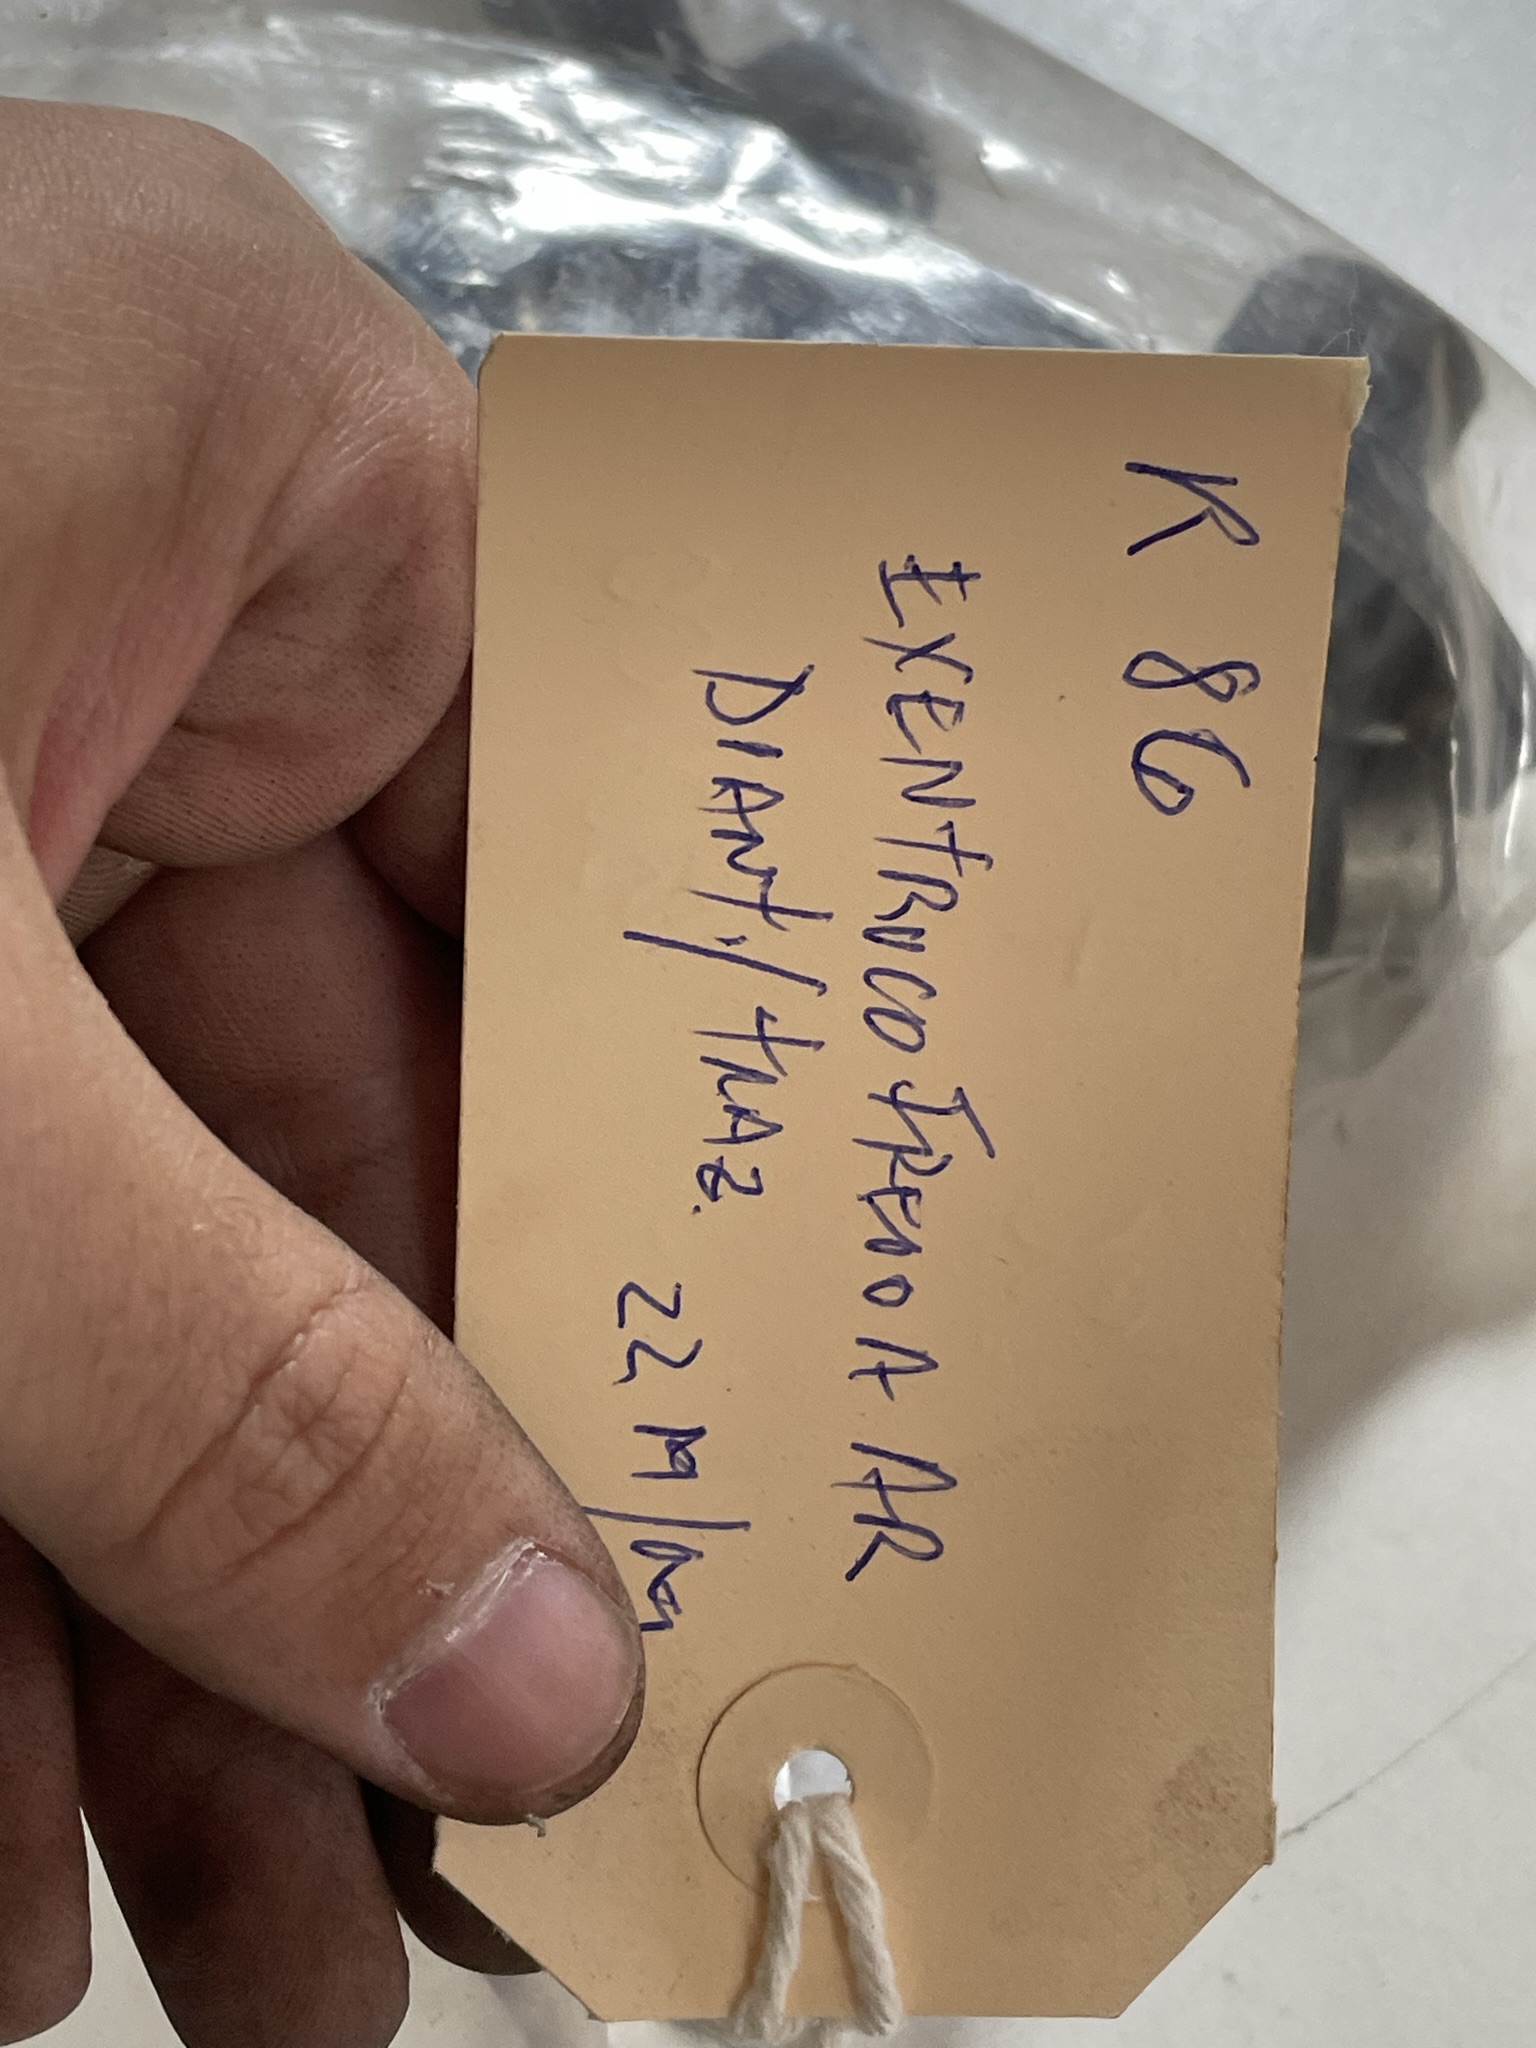 K 86
EXENTRICO FREIO A AR
DIANT./TRAZ.
22 M/M